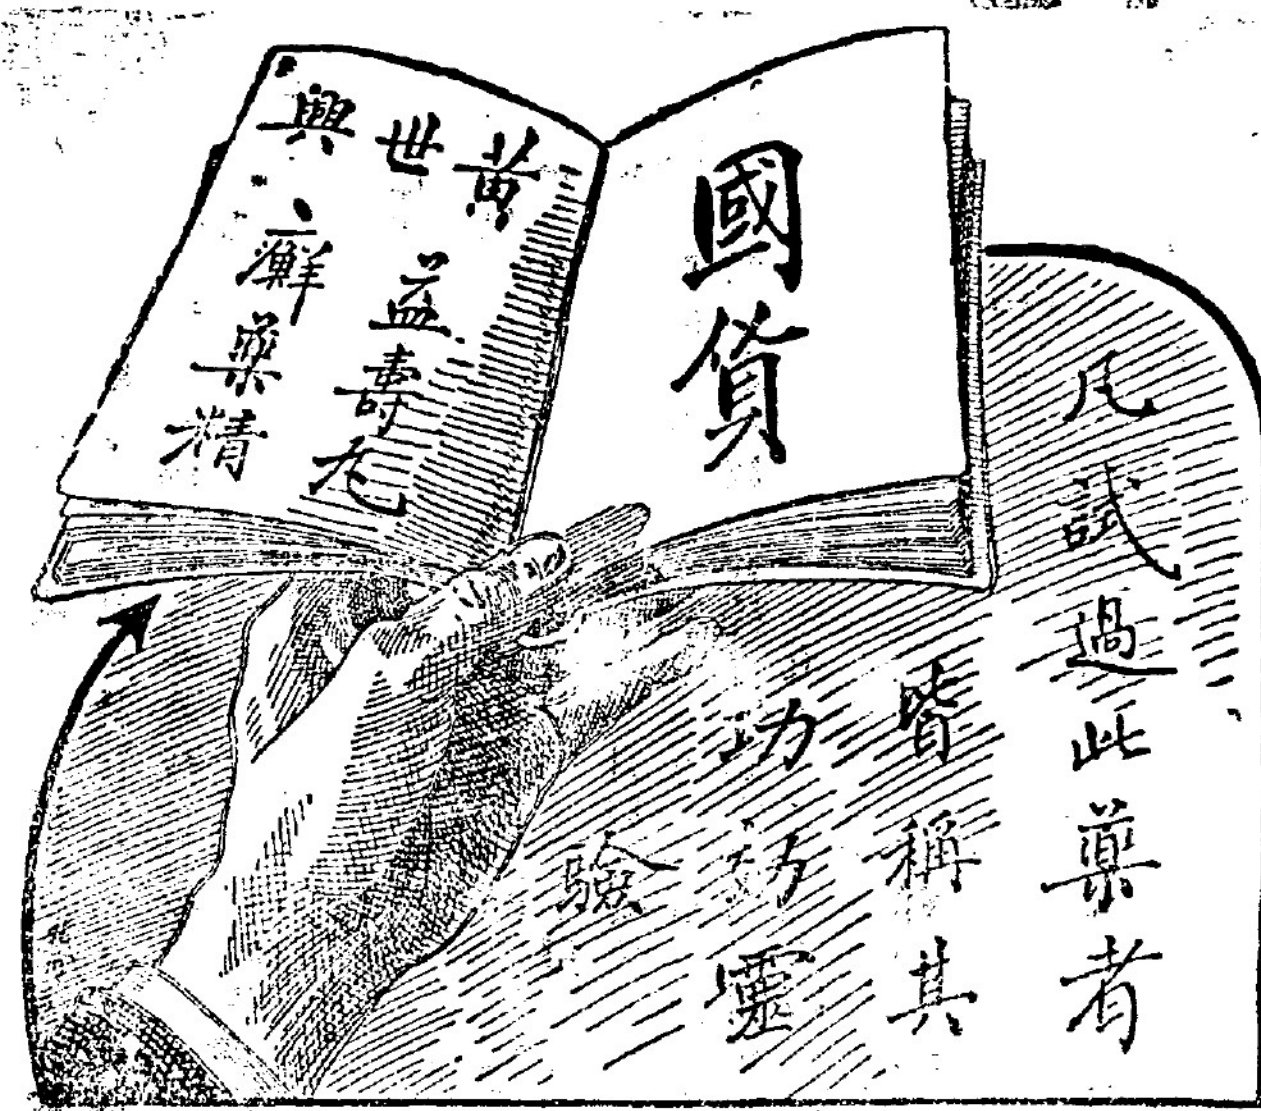 國貨
黃世興
益壽丸
癬薬精
凡試過此薬者
皆稱其
功効靈
驗